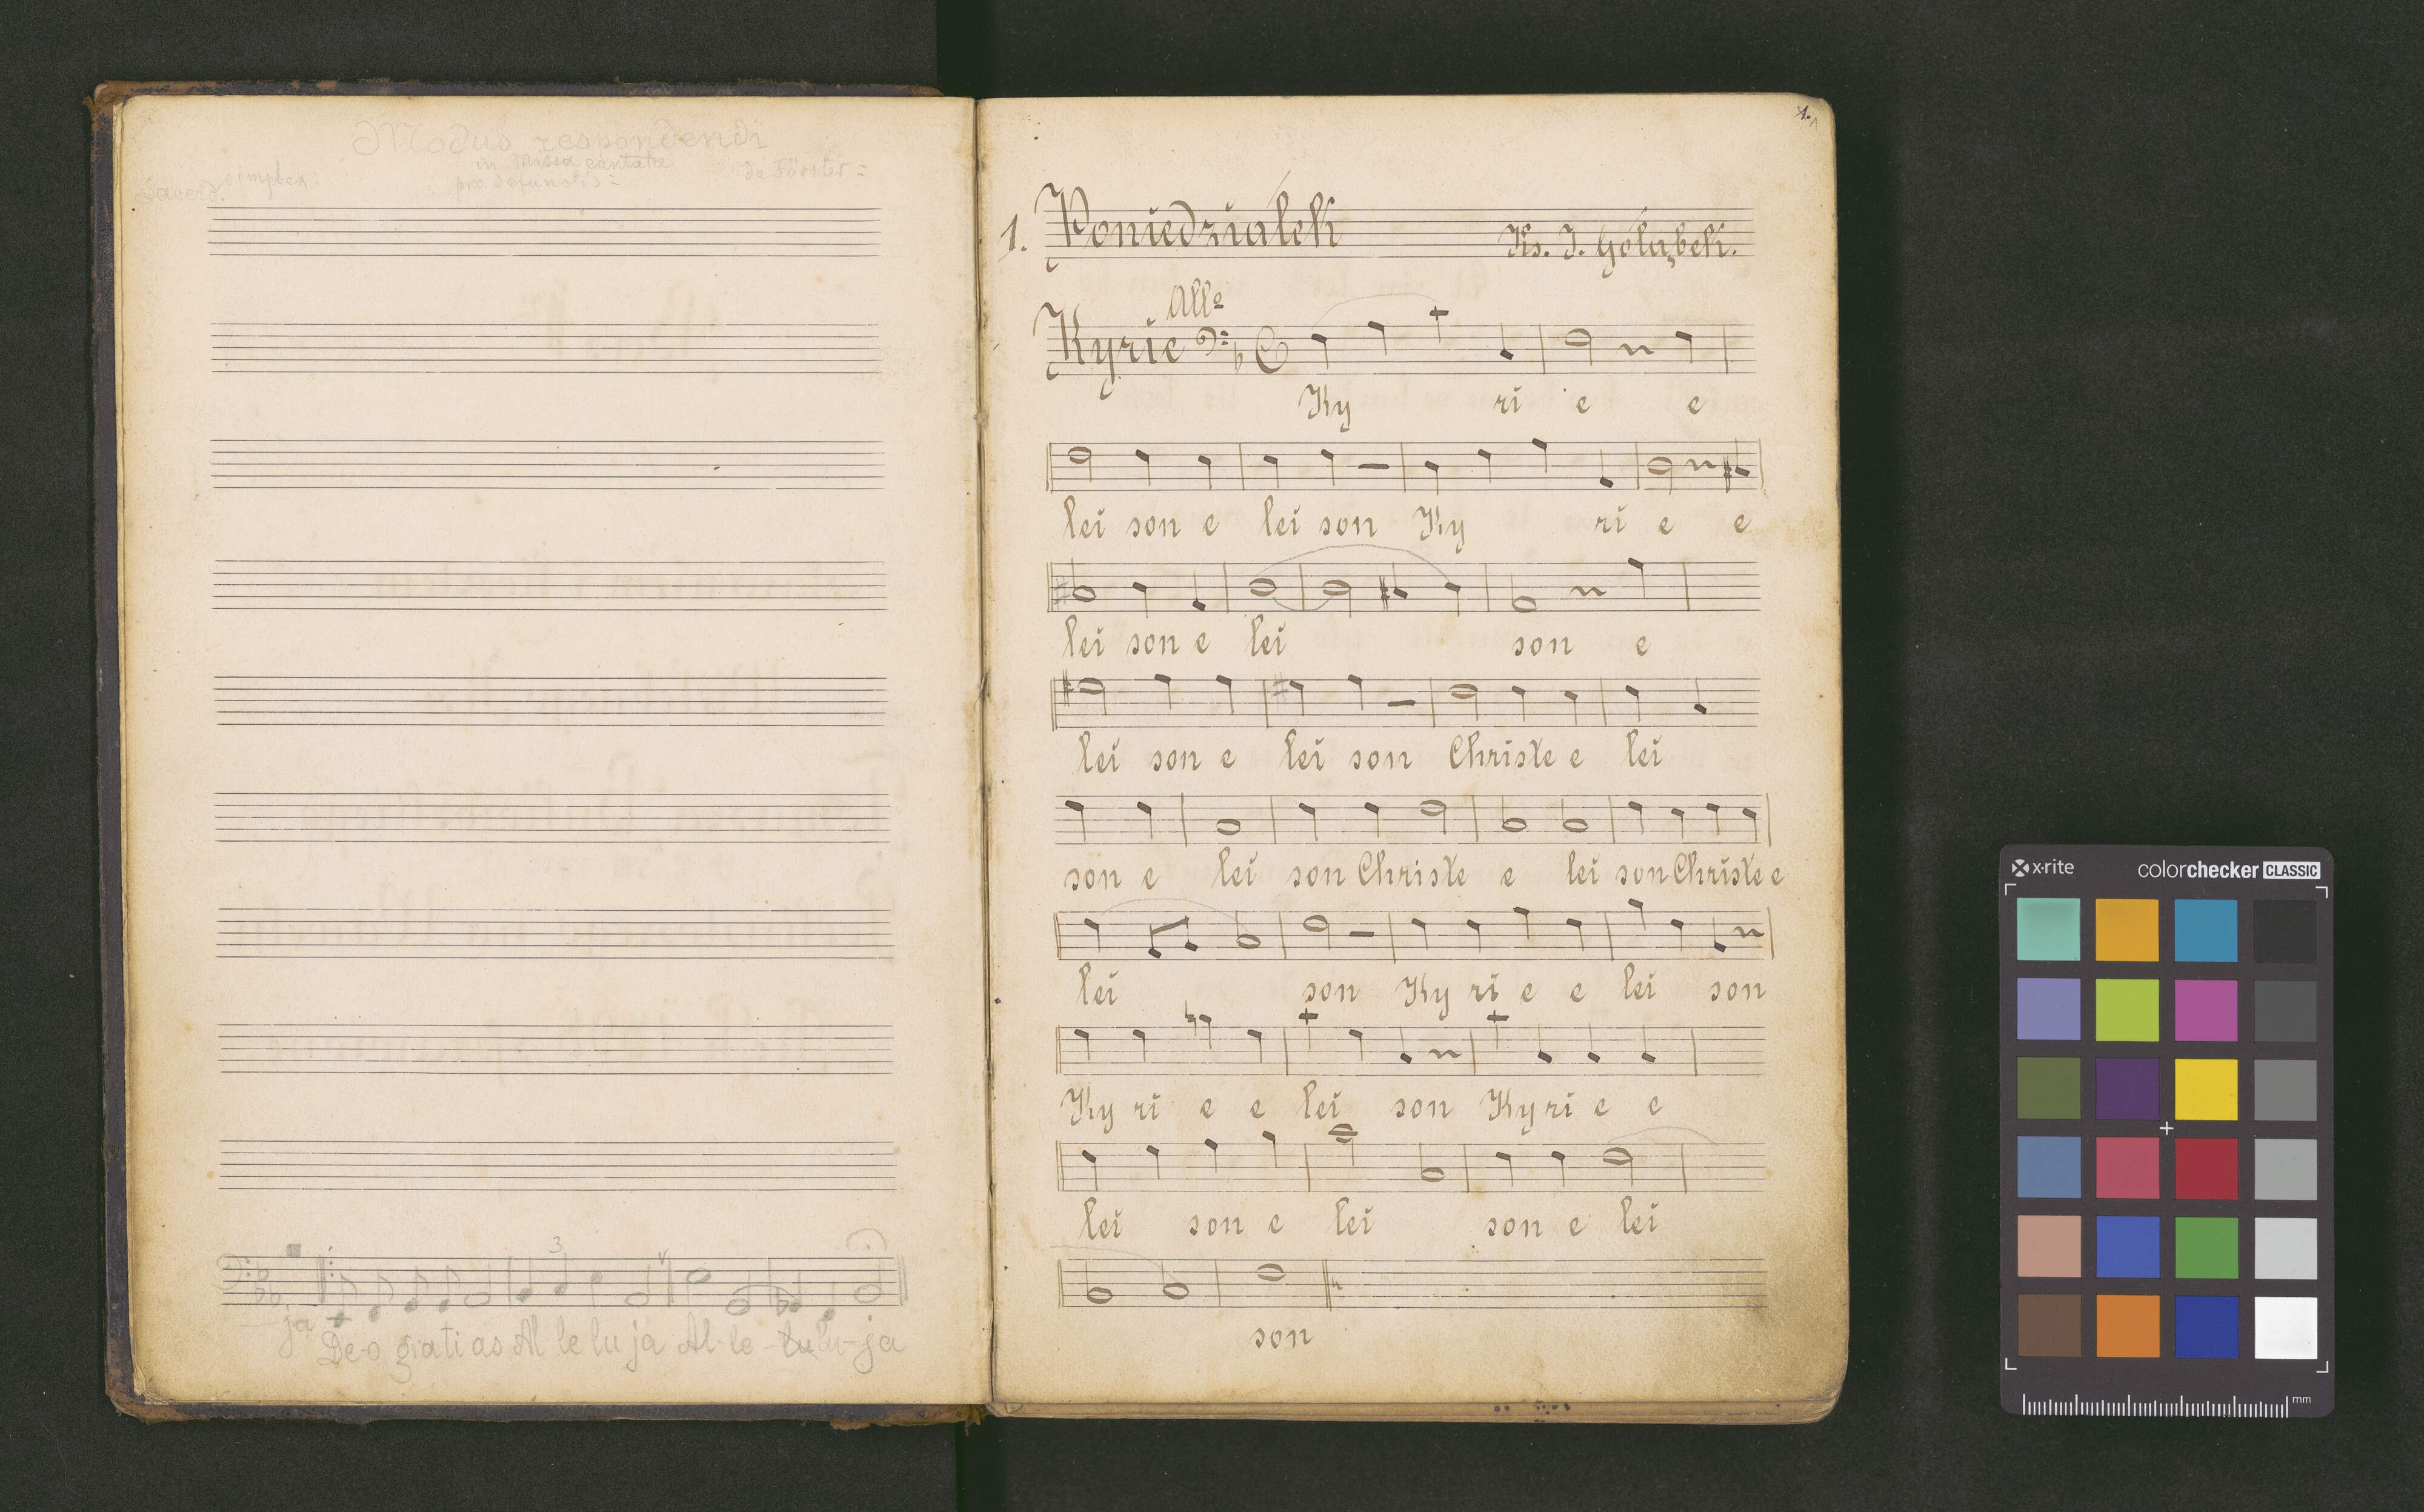 Modus respondendi
in Missa cantata
simplex: pro defunctis: de Förster =
Sacerd.
3
ja De-o gratias Al le lu ja Al-le-lu-ja
1.
1. Poniedziałek Ks. J. Gołąbek.
Allo
Kyrie
Ky ri e e
lei son e lei son Ky ri e e
lei son e lei son e
lei son e lei son Christe e lei
son e lei son Christe e lei son Christe e
lei son Ky ri e e lei son
Ky ri e e lei son Ky ri e e
lei son e lei son e lei
son
x·rite colorchecker CLASSIC
mm